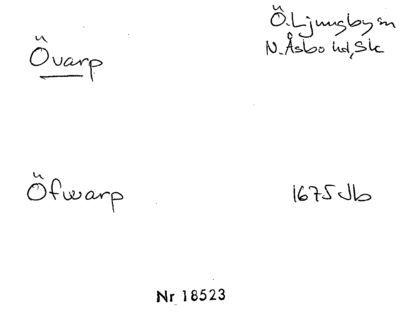 Övarp
Ö. Ljungby sn
N. Åsbo hd, Sk
Öfwarp
1675 Jb
Nr 18523